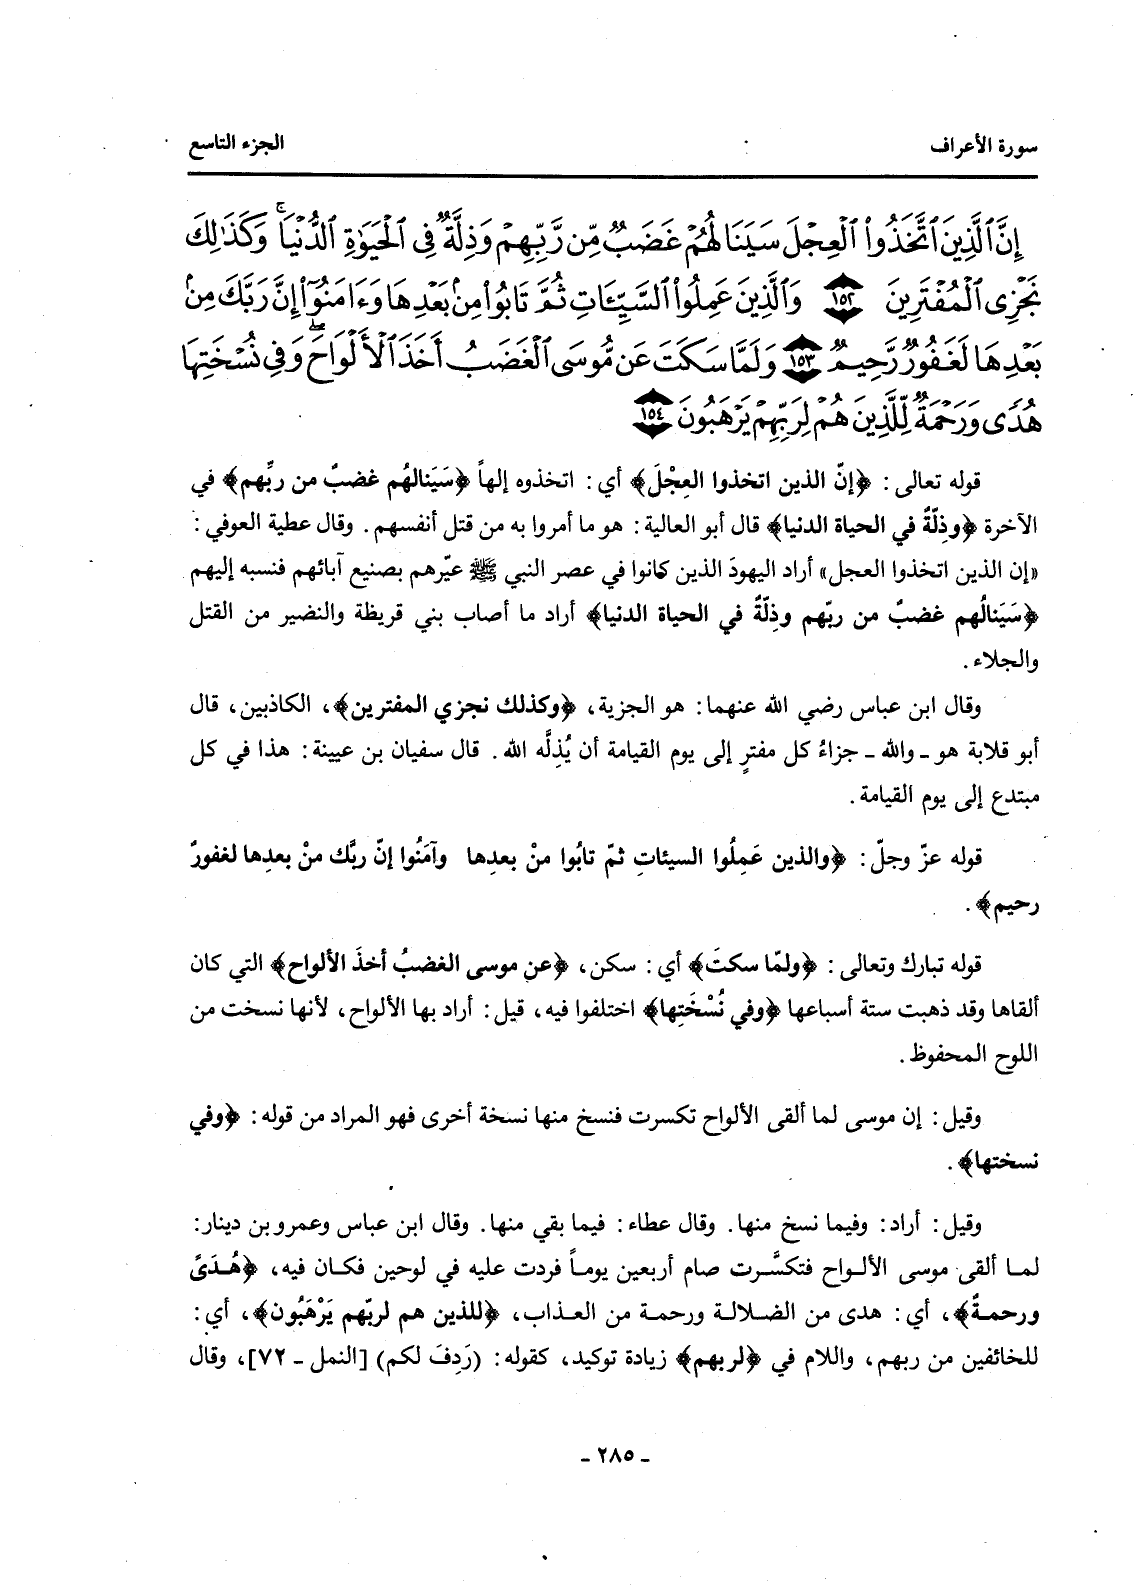 سورة الأعراف
الجزء التاسع
إِنَّ ٱلَّذِينَ ٱتَّخَذُوا۟ ٱلْعِجْلَ سَيَنَالُهُمْ غَضَبٌ مِّن رَّبِّهِمْ وَذِلَّةٌ فِى ٱلْحَيَوٰةِ ٱلدُّنْيَا ۚ وَكَذَٰلِكَ
نَجْزِى ٱلْمُفْتَرِينَ ١٥٢ وَٱلَّذِينَ عَمِلُوا۟ ٱلسَّيِّـَٔاتِ ثُمَّ تَابُوا۟ مِنۢ بَعْدِهَا وَءَامَنُوٓا۟ إِنَّ رَبَّكَ مِنۢ
بَعْدِهَا لَغَفُورٌ رَّحِيمٌ ١٥٣ وَلَمَّا سَكَتَ عَن مُّوسَى ٱلْغَضَبُ أَخَذَ ٱلْأَلْوَاحَ ۖ وَفِى نُسْخَتِهَا
هُدًى وَرَحْمَةٌ لِّلَّذِينَ هُمْ لِرَبِّهِمْ يَرْهَبُونَ ١٥٤
قوله تعالى : ﴿إنّ الذين اتخذوا العِجْلَ﴾ أي : اتخذوه إلهاً ﴿سَيَنالهُم غضبٌ من ربِّهم﴾ في
الآخرة ﴿وذِلّةٌ في الحياة الدنيا﴾ قال أبو العالية : هو ما أمروا به من قتل أنفسهم . وقال عطية العوفي :
«إن الذين اتخذوا العجل» أراد اليهودَ الذين كانوا في عصر النبي ﷺ عيّرهم بصنيع آبائهم فنسبه إليهم
﴿سَيَنالُهم غضبٌ من ربّهم وذِلّةٌ في الحياة الدنيا﴾ أراد ما أصاب بني قريظة والنضير من القتل
والجلاء .
وقال ابن عباس رضي الله عنهما : هو الجزية، ﴿وكذلك نجزي المفترين﴾، الكاذبين، قال
أبو قلابة هو ـ والله ـ جزاءُ كل مفترٍ إلى يوم القيامة أن يُذِلَّه الله . قال سفيان بن عيينة : هذا في كل
مبتدع إلى يوم القيامة .
قوله عزّ وجلّ : ﴿والذين عَمِلُوا السيئاتِ ثمّ تابُوا منْ بعدِها وآمَنُوا إنّ ربَّك منْ بعدِها لغفورٌ
رحيم﴾ .
قوله تبارك وتعالى : ﴿ولمّا سكتَ﴾ أي : سكن، ﴿عن موسى الغضبُ أخذَ الألواح﴾ التي كان
ألقاها وقد ذهبت ستة أسباعها ﴿وفي نُسْخَتِها﴾ اختلفوا فيه، قيل : أراد بها الألواح، لأنها نسخت من
اللوح المحفوظ .
وقيل : إن موسى لما ألقى الألواح تكسرت فنسخ منها نسخة أخرى فهو المراد من قوله : ﴿وفي
نسختها﴾ .
وقيل : أراد : وفيما نسخ منها . وقال عطاء : فيما بقي منها . وقال ابن عباس وعمرو بن دينار :
لمـا ألقى موسى الألـواح فتكسَّـرت صام أربعين يومـاً فردت عليه في لوحين فكـان فيه، ﴿هُـدَىً
ورحمـةٌ﴾، أي : هدى من الضـلالـة ورحمـة من العـذاب، ﴿للذين هم لربّهم يَرْهَبُون﴾، أي :
للخائفين من ربهم، واللام في ﴿لربهم﴾ زيادة توكيد، كقوله : (رَدِفَ لكم) [النمل ـ ٧٢]، وقال
ـ ٢٨٥ ـ